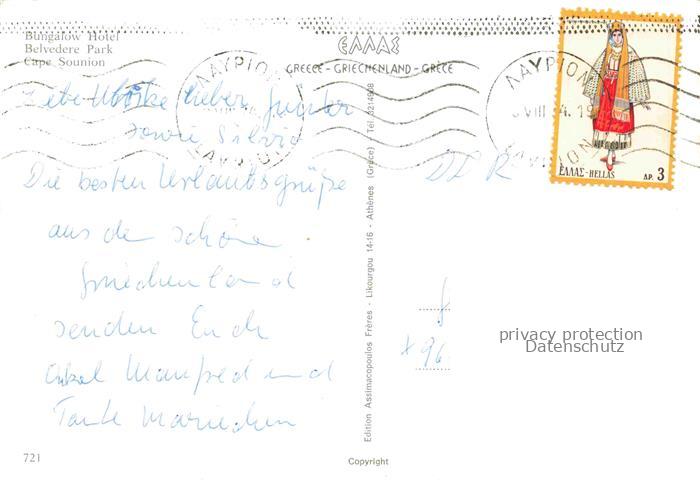 Bungalow Hotel
Belvedere Park
Cape Sounion
ΕΛΛΑΣ
GREECE - GRIECHENLAND - GRÈCE
Liebe Ulrike lieber Gunter
sowie Silvio
Die besten Urlaubsgrüße
aus de schöne
Griechenland
senden Euch
Onkel Manfred und
Tante Mariechen
721
Edition Assimacopoulos Frères - Likourgou 14-16 - Athènes (Grèce) Tél. 3214508
Copyright
ΛΑΥΡΙΟΝ
ΛΑΥΡΙΟΝ
ΛΑΥΡΙΟΝ
VIII
ΕΛΛΑΣ-HELLAS
ΔΡ. 3
DDR
X 96
privacy protection
Datenschutz